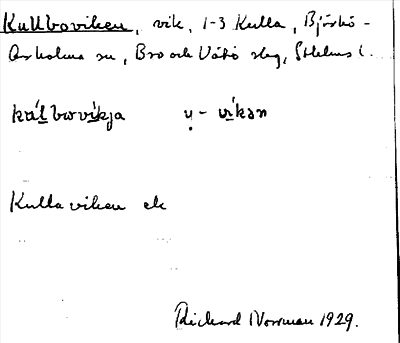 Kullboviken, vik, 1-3 Kulla, Björkö-
Arholma sn, Bro och Vätö skg, Sthlms l.
kúl̲bovi̲kja ṿ - vi̲kən
Kullaviken ek
Rickard Norrman 1929.